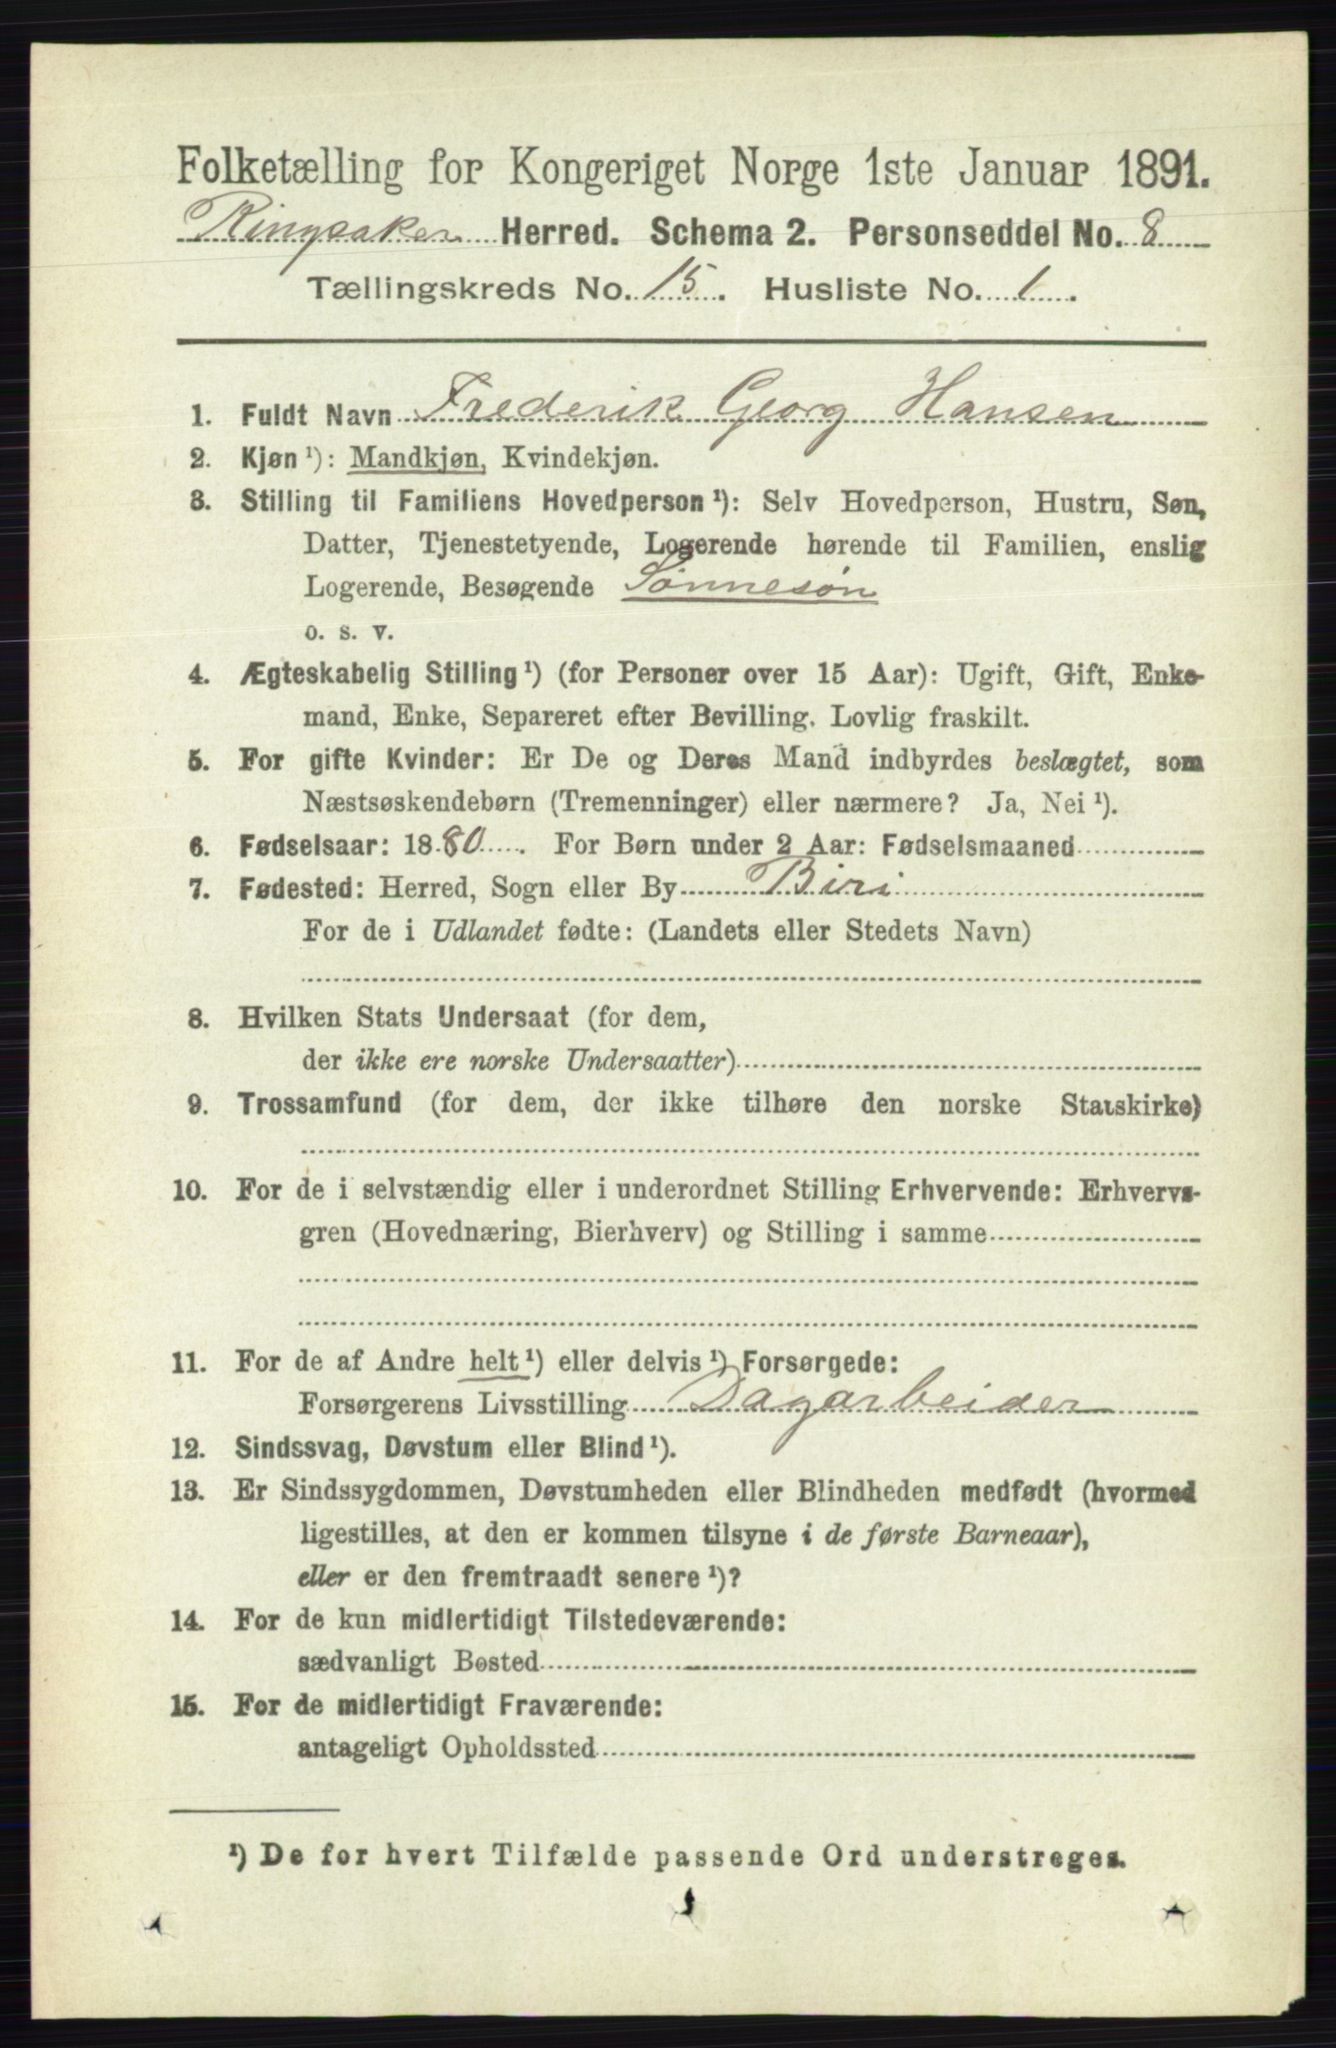 Folketælling for Kongeriget Norge 1ste Januar 1891.
Ringsaker Herred. Schema 2. Personseddel No. 8
Tællingskreds No. 15. Husliste No. 1.
1. Fuldt Navn Frederik Georg Hansen
2. Kjøn ¹): Mandkjøn, Kvindekjøn.
3. Stilling til Familiens Hovedperson ¹): Selv Hovedperson, Hustru, Søn,
Datter, Tjenestetyende, Logerende hørende til Familien, enslig
Logerende, Besøgende Sønnesøn
o. s. v.
4. Ægteskabelig Stilling ¹) (for Personer over 15 Aar): Ugift, Gift, Enke-
mand, Enke, Separeret efter Bevilling. Lovlig fraskilt.
5. For gifte Kvinder: Er De og Deres Mand indbyrdes beslægtet, som
Næstsøskendebørn (Tremenninger) eller nærmere? Ja, Nei ¹).
6. Fødselsaar: 1880. For Børn under 2 Aar: Fødselsmaaned
7. Fødested: Herred, Sogn eller By Biri
For de i Udlandet fødte: (Landets eller Stedets Navn)
8. Hvilken Stats Undersaat (for dem,
der ikke ere norske Undersaatter)
9. Trossamfund (for dem, der ikke tilhøre den norske Statskirke)
10. For de i selvstændig eller i underordnet Stilling Erhvervende: Erhvervs-
gren (Hovednæring, Bierhverv) og Stilling i samme
11. For de af Andre helt ¹) eller delvis ¹) Forsørgede:
Forsørgerens Livsstilling Dagarbeider
12. Sindssvag, Døvstum eller Blind ¹).
13. Er Sindssygdommen, Døvstumheden eller Blindheden medfødt (hvormed
ligestilles, at den er kommen tilsyne i de første Barneaar),
eller er den fremtraadt senere ¹)?
14. For de kun midlertidigt Tilstedeværende:
sædvanligt Bosted
15. For de midlertidigt Fraværende:
antageligt Opholdssted
¹) De for hvert Tilfælde passende Ord understreges.